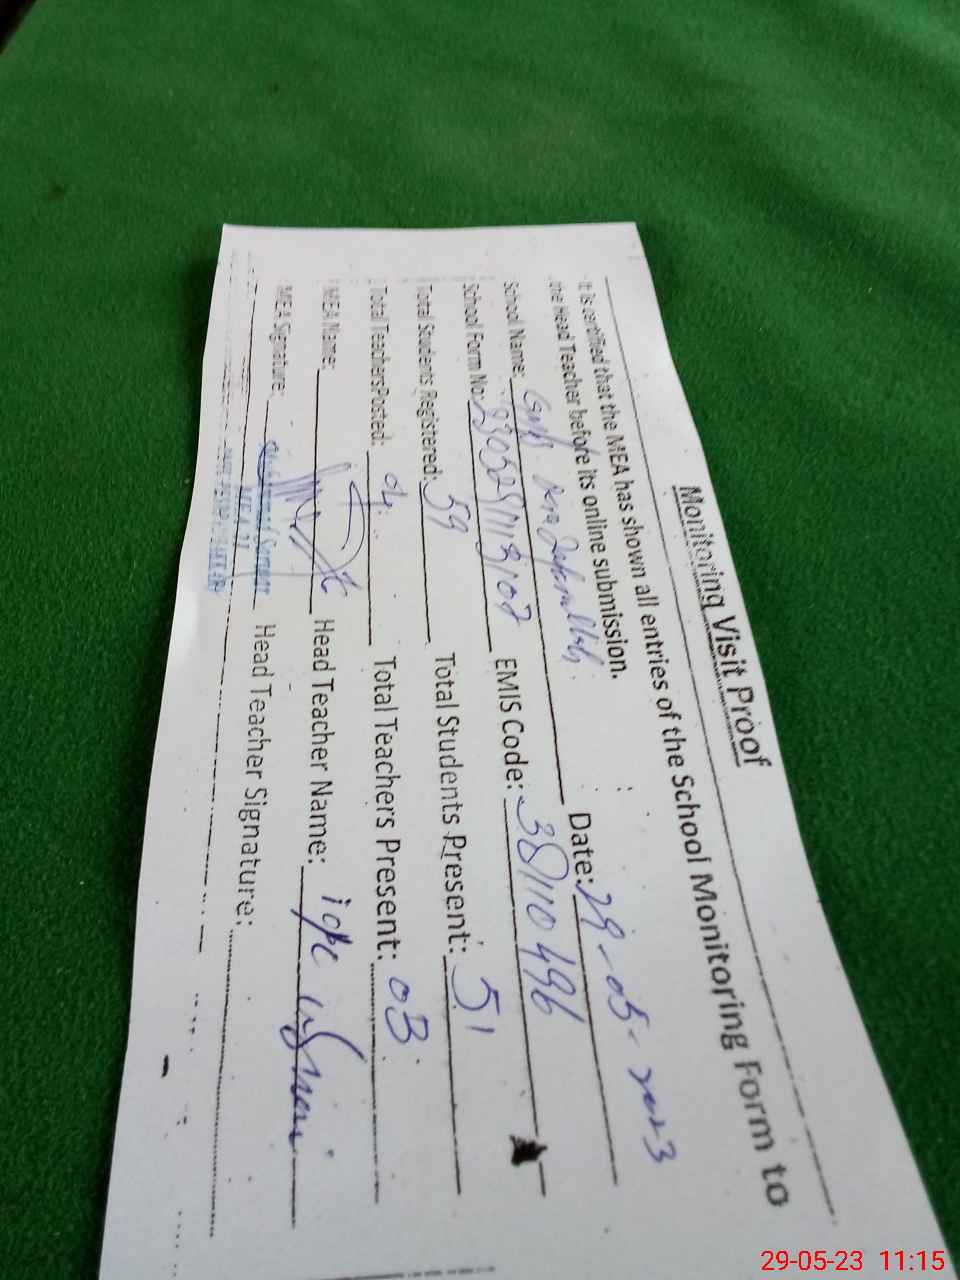 Monitoring Visit Proof
It is certified that the MEA has shown all entries of the School Monitoring Form to
the Head Teacher before its online submission.
School Name: Date: 29-05-2023
School Form No: EMIS Code: 38110496
Total Students Registered: 59 Total Students Present: 51
Total TeachersPosted: 04 Total Teachers Present: 03
MEA Name: Head Teacher Name:
MEA Signature: Head Teacher Signature:
29-05-23 11:15